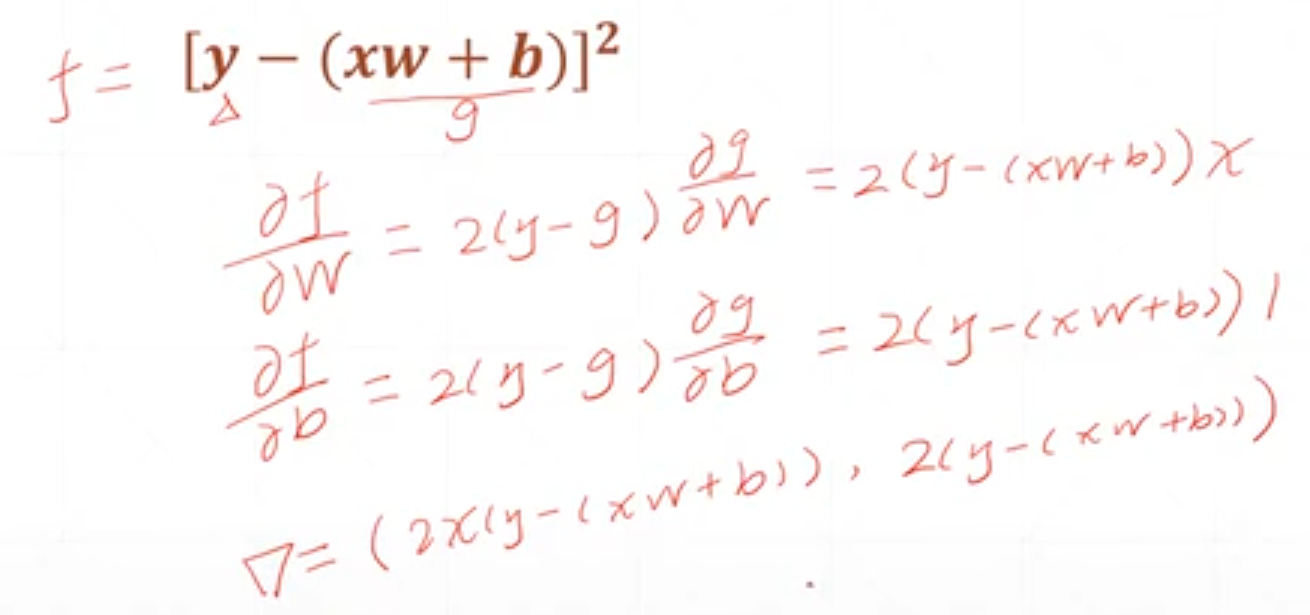 f = [y − (xw + b)]²
Δ g
∂f/∂w = 2(y-g) ∂g/∂w = 2(y-(xw+b))x
∂f/∂b = 2(y-g) ∂g/∂b = 2(y-(xw+b)) 1
∇= (2x(y-(xw+b)), 2(y-(xw+b)))